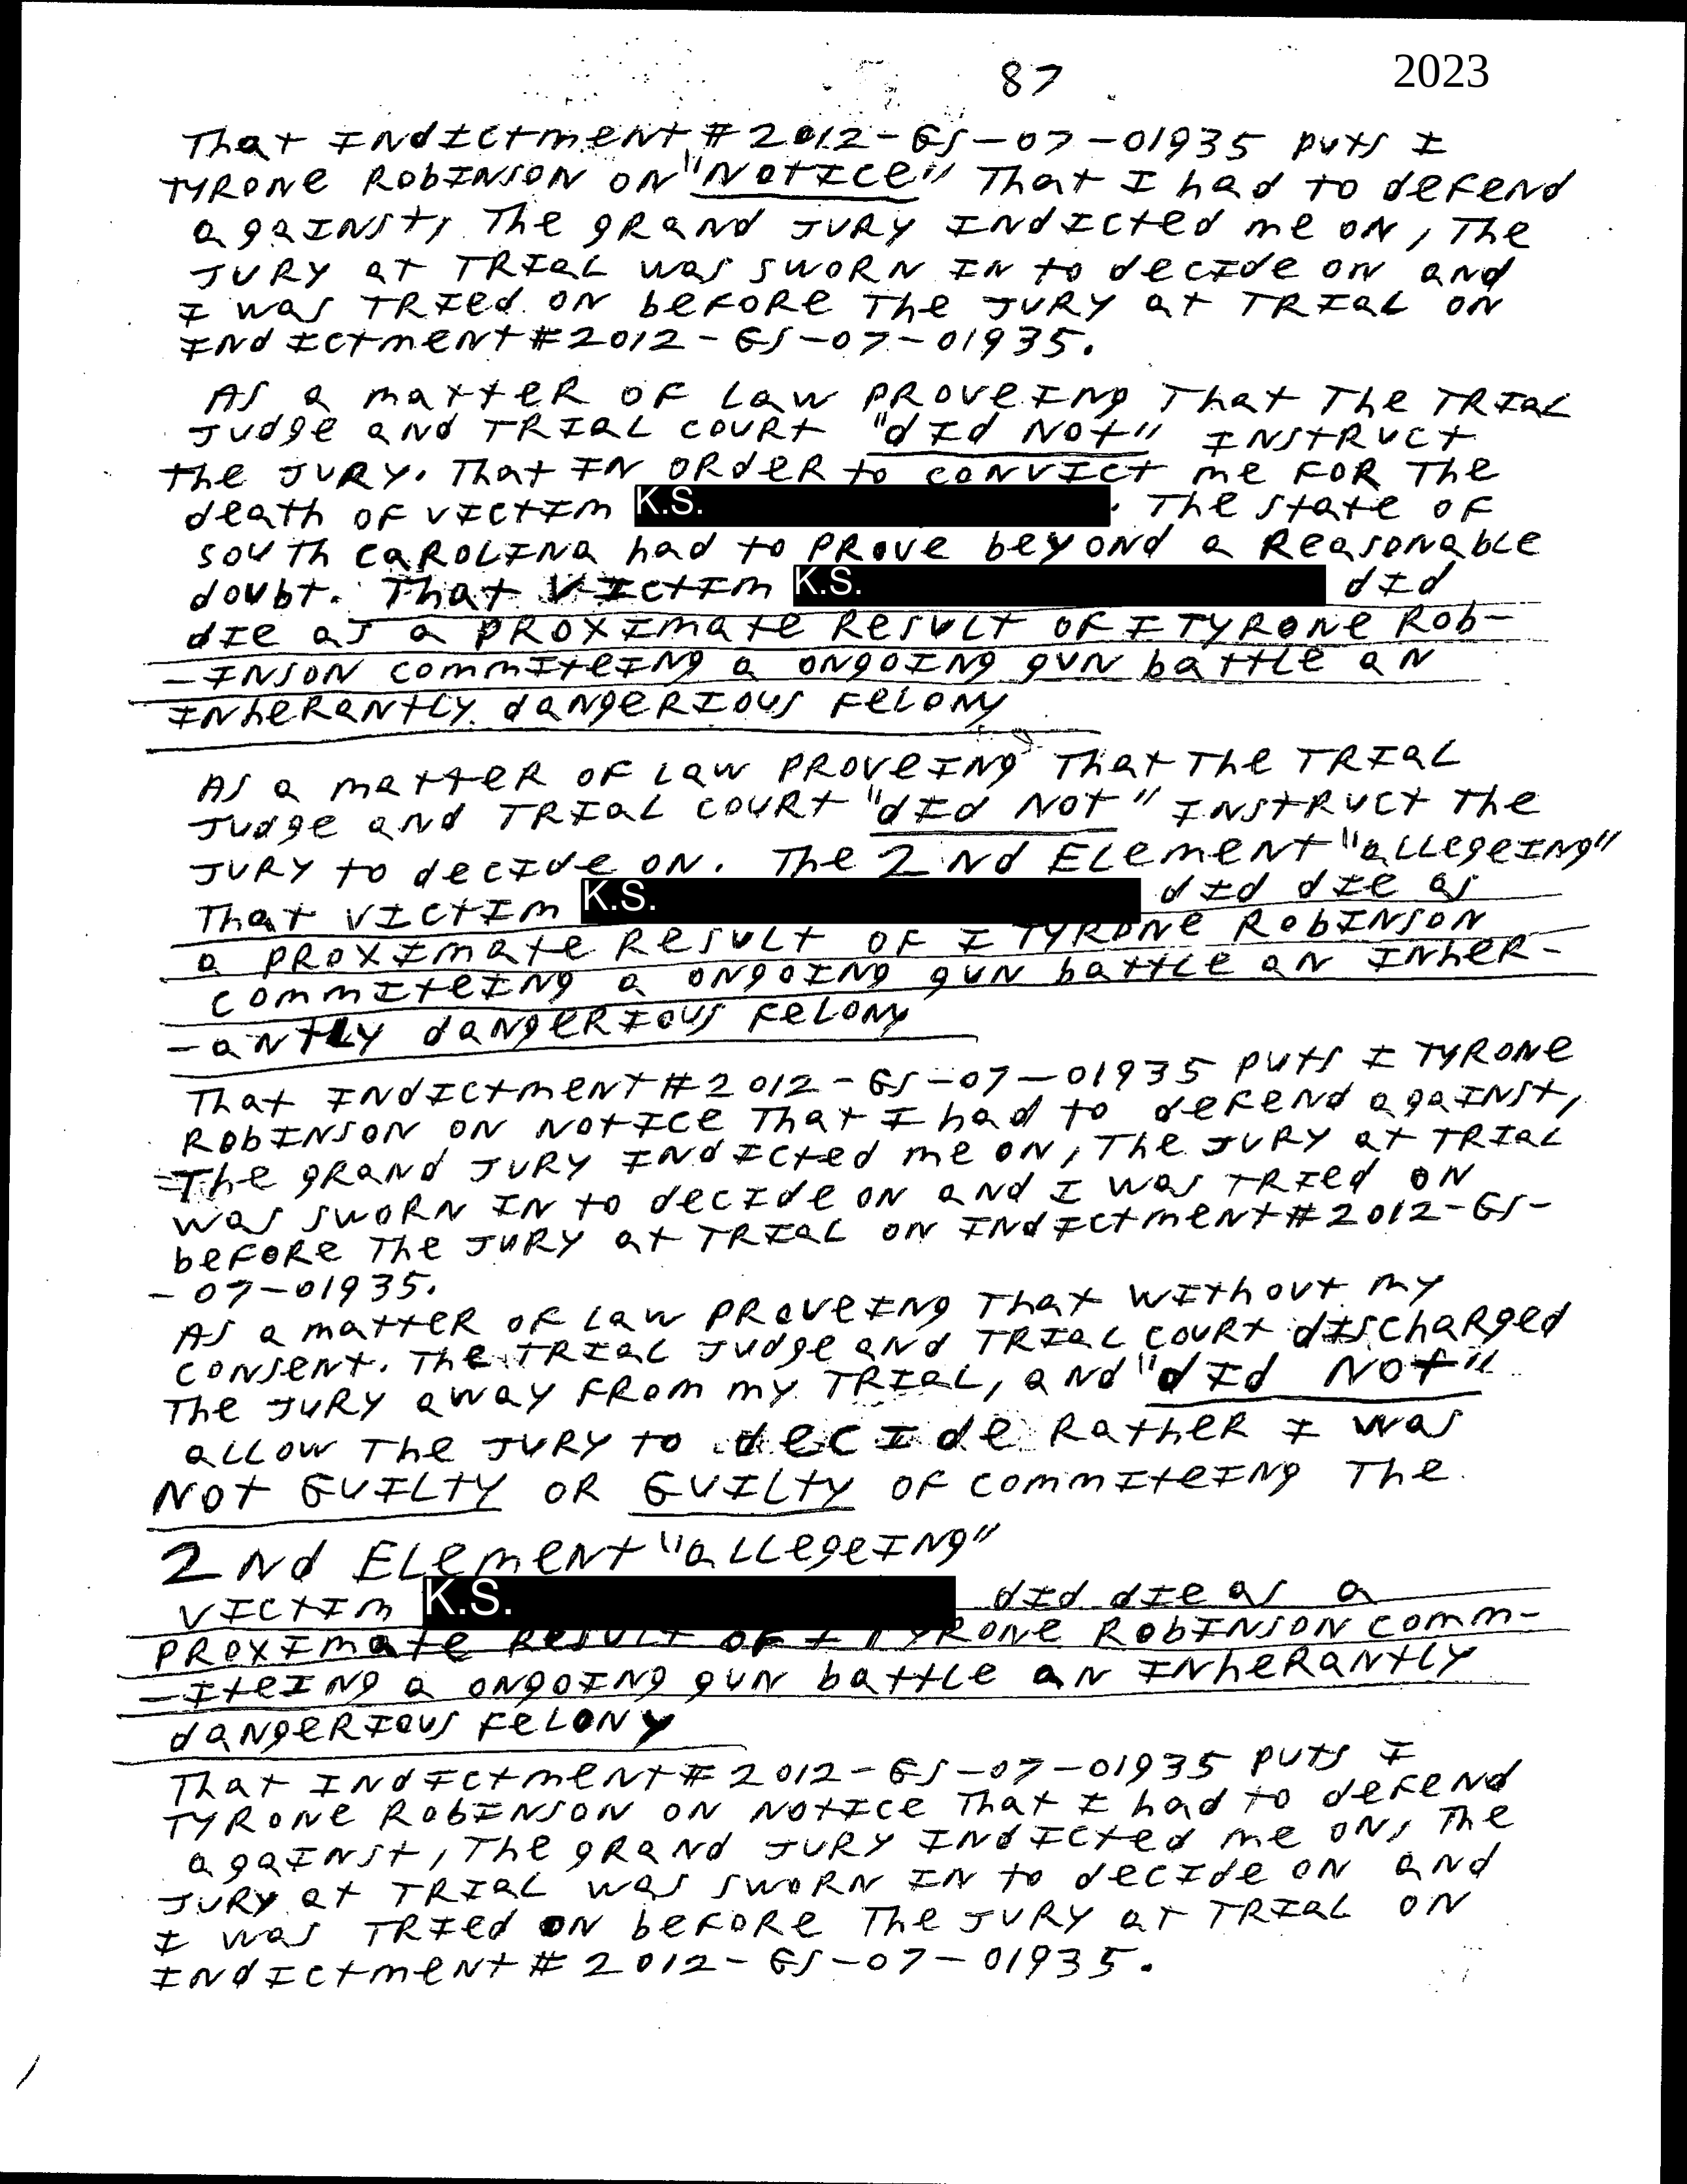 87 2023
That Indictment # 2012-GS-07-01935 puts I
Tyrone Robinson on "Notice" That I had to defend
against, The grand Jury Indicted me on, The
Jury at Trial was sworn in to decide on and
I was Tried on before The Jury at Trial on
Indictment # 2012-GS-07-01935.
As a matter of Law proveing That The Trial
Judge and Trial court "did Not" Instruct
the Jury. That In order to convict me for The
death of victim K.S. . The state of
south carolina had to prove beyond a Reasonable
doubt. That victim K.S. did
die as a proximate Result of I Tyrone Rob-
-inson commiteing a ongoing gun battle an
Inherantly dangerious felony
As a matter of Law proveing That The Trial
Judge and Trial court "did Not" Instruct The
Jury to decide on. The 2nd Element "allegeing"
That victim K.S. did die as
a proximate Result of I Tyrone Robinson
commiteing a ongoing gun battle an Inher-
-antly dangerious felony
That Indictment # 2012-GS-07-01935 puts I Tyrone
Robinson on Notice That I had to defend against,
The grand Jury Indicted me on, The Jury at Trial
was sworn in to decide on and I was Tried on
before The Jury at Trial on Indictment # 2012-GS-
-07-01935.
As a matter of Law proveing That without my
consent. The Trial Judge and Trial court discharged
The Jury away from my Trial, and "did Not"
allow The Jury to decide Rather I was
Not Guilty or Guilty of commiteing The
2nd Element "allegeing"
victim K.S. did die as a
proximate Result of I Tyrone Robinson comm-
-iteing a ongoing gun battle an Inherantly
dangerious felony
That Indictment # 2012-GS-07-01935 puts I
Tyrone Robinson on Notice That I had to defend
against, The grand Jury Indicted me on, The
Jury at Trial was sworn in to decide on and
I was Tried on before The Jury at Trial on
Indictment # 2012-GS-07-01935.